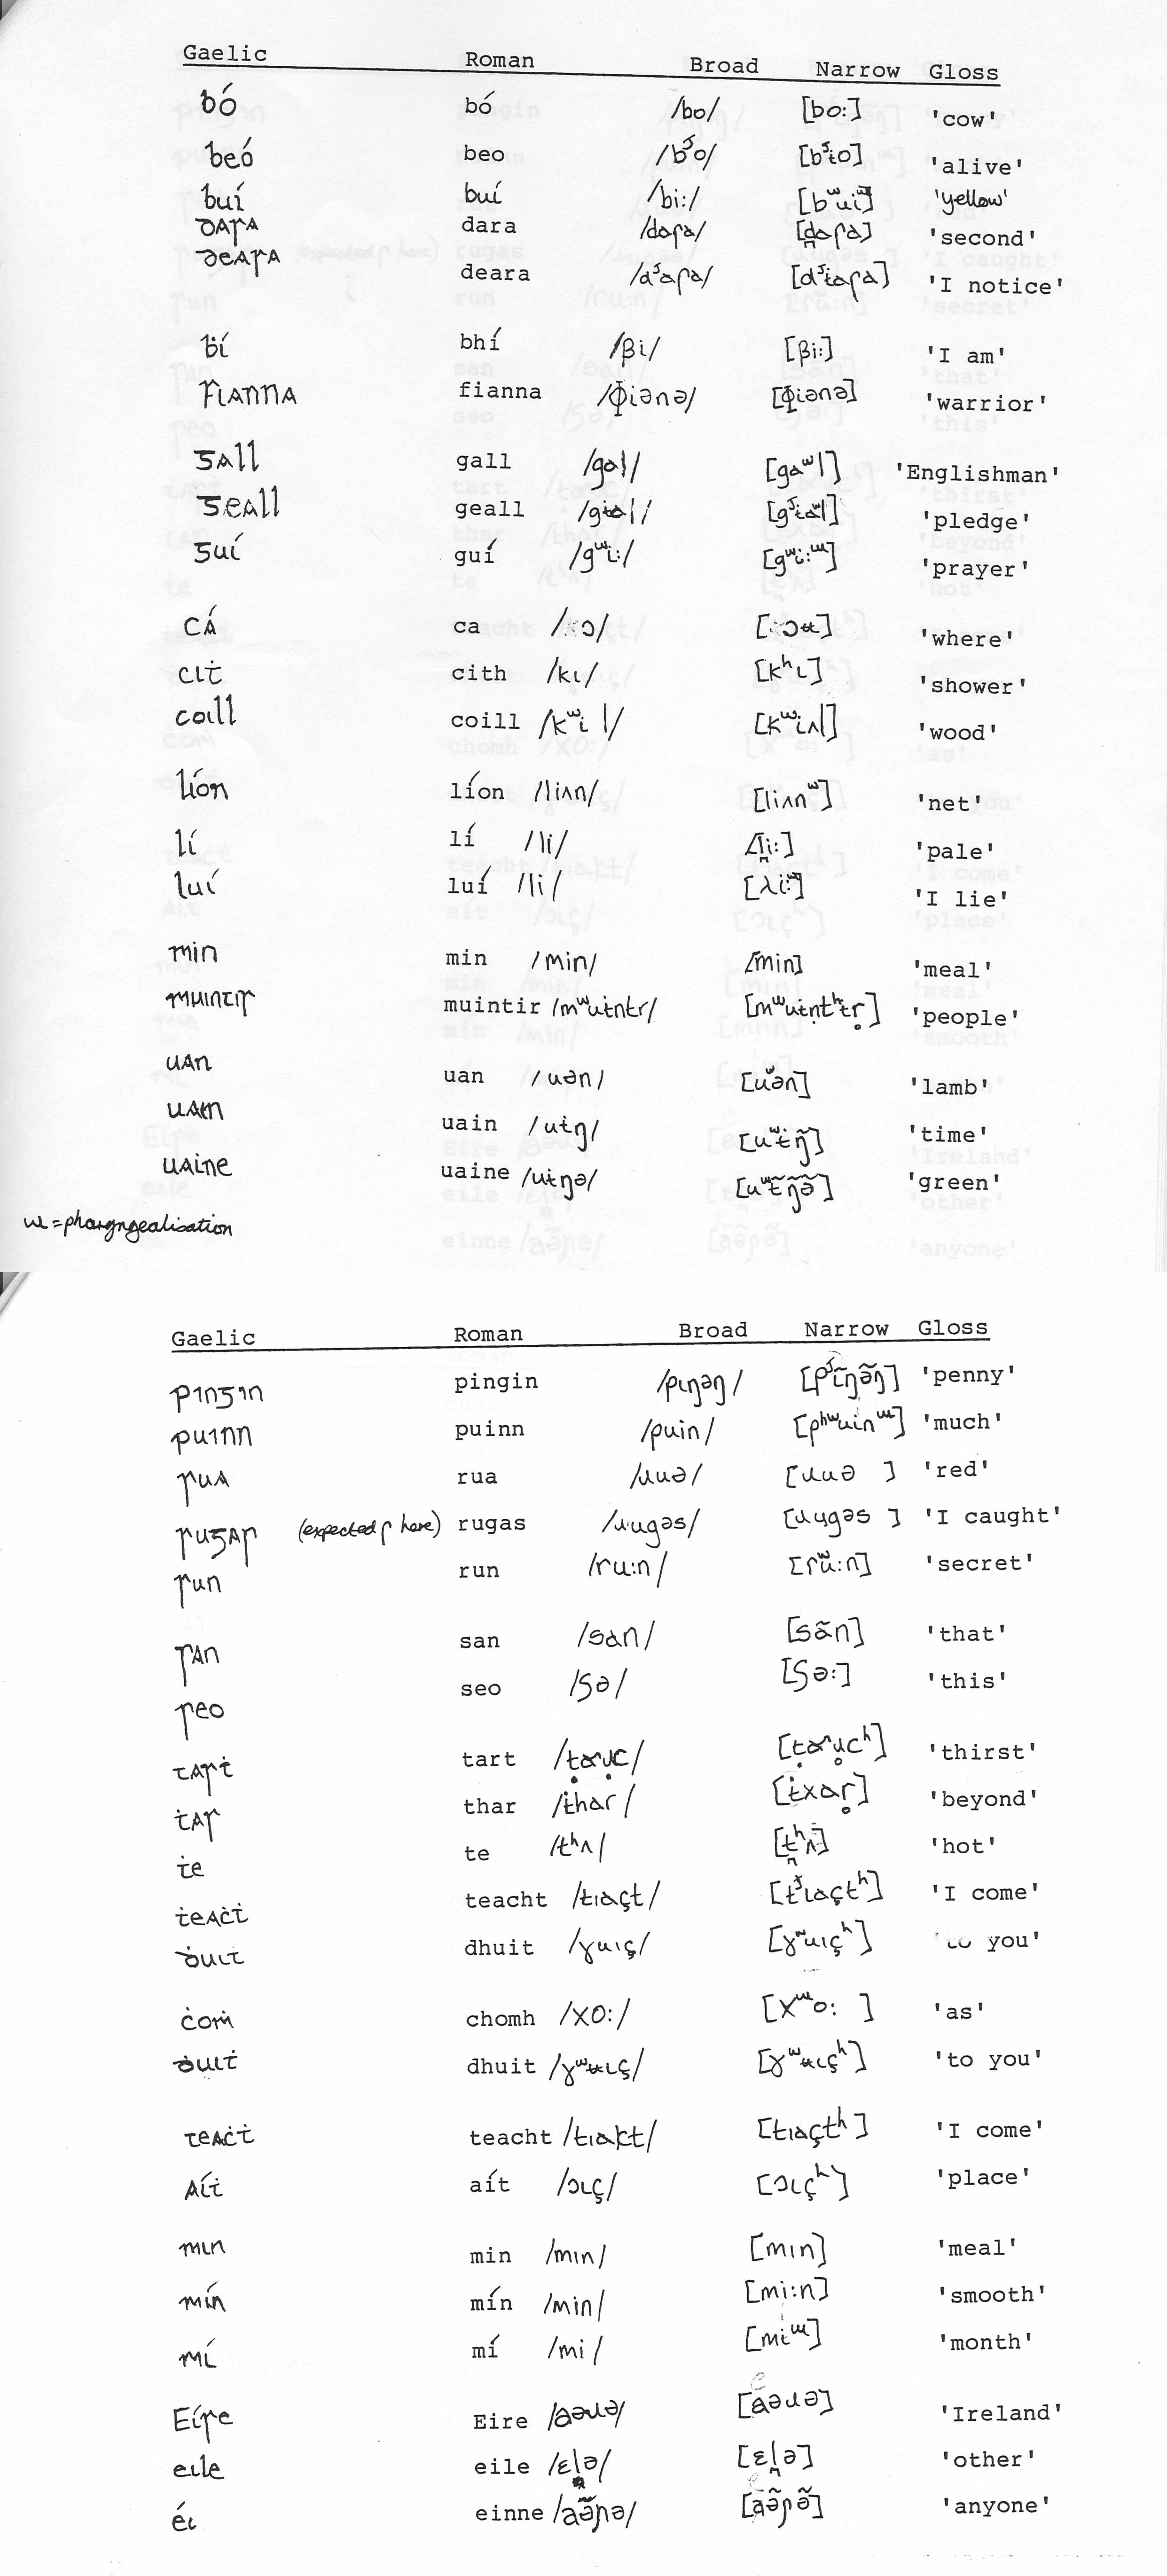 Gaelic Roman Broad Narrow Gloss
bó bó /bo/ [bo:] 'cow'
beó beo /bʲo/ 'alive'
buí buí /bi:/ 'yellow'
ꝺaꞃa dara /daɾa/ [d̪aɾa] 'second'
ꝺeaꞃa deara /dʲaɾa/ 'I notice'
ḃí bhí /βi/ [βi:] 'I am'
ꝼianna fianna /ɸiənə/ [ɸiənə] 'warrior'
ᵹall gall /gal/ [gaʷl] 'Englishman'
ᵹeall geall 'pledge'
ᵹuí guí /gʷi:/ [gʷi:ɯ] 'prayer'
cá ca 'where'
ciṫ cith /kɩ/ [kʰɩ] 'shower'
coill coill /kʷi l/ [kʷiʌl] 'wood'
líon líon /liʌn/ [liʌnʷ] 'net'
lí lí /li/ [l̪i:] 'pale'
luí luí /li/ 'I lie'
min min /min/ [min] 'meal'
muintiꞃ muintir /mʷuɨntr/ 'people'
uan uan /uən/ [uʷən] 'lamb'
uain uain /uɨŋ/ [uʷɨŋ̃] 'time'
uaine uaine /uɨŋə/ [uʷɨ̃ŋ̃ə̃] 'green'
ɯ = pharyngealisation
Gaelic Roman Broad Narrow Gloss
pinᵹin pingin /pɩŋəŋ/ [pʲɩ̃ŋə̃ŋ] 'penny'
puinn puinn /puin/ [pʰʷuinɯ] 'much'
ꞃua rua /ɹuə/ [ɹuə ] 'red'
ꞃuᵹaꞃ (expected ꞅ here) rugas /ɹugəs/ [ɹugəs ] 'I caught'
ꞃun run /ru:n/ 'secret'
ꞅan san /san/ [sãn] 'that'
ꞅeo seo /ʂə/ [ʂə:] 'this'
taꞃṫ tart 'thirst'
ṫaꞃ thar /ɨhar/ 'beyond'
ṫe te /tʰʌ/ 'hot'
ṫeaċṫ teacht /tɩaçt/ [tʲɩaçtʰ] 'I come'
ꝺ̇uit dhuit /ɣuɩç/ you'
ċoṁ chomh /xo:/ [xɯo: ] 'as'
ꝺ̇uiṫ dhuit /ɣʷʉɩç/ [ɣʷʉɩçʰ] 'to you'
teaċṫ teacht [tɩaçtʰ] 'I come'
Aíṫ aít /ɔɩç/ [ɔɩçʰ] 'place'
min min /mɩn/ [mɩn] 'meal'
mín mín /min/ [mi:n] 'smooth'
mí mí /mi/ [miɯ] 'month'
Eíꞃe Eire /aəɹə/ [aəɹə] 'Ireland'
eile eile /ɛlə/ [ɛl̪ə] 'other'
éi einne /aə̃ɲə/ [ãə̃ɲə̃] 'anyone'